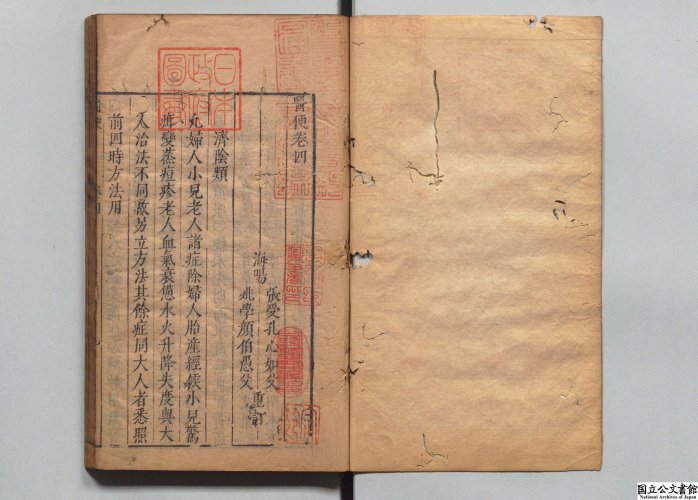 醫便卷四
海陽
張受孔心如父
姚學顏伯愚父
重訂
濟陰類
凡婦人小兒老人諸症除婦人胎產經候小兒驚
疳變蒸痘疹老人血氣衰憊水火升降失度與大
人治法不同故另立方法其餘症同大人者悉照
前四時方法用
日本
政府
圖書
国立公文書館
National Archives of Japan